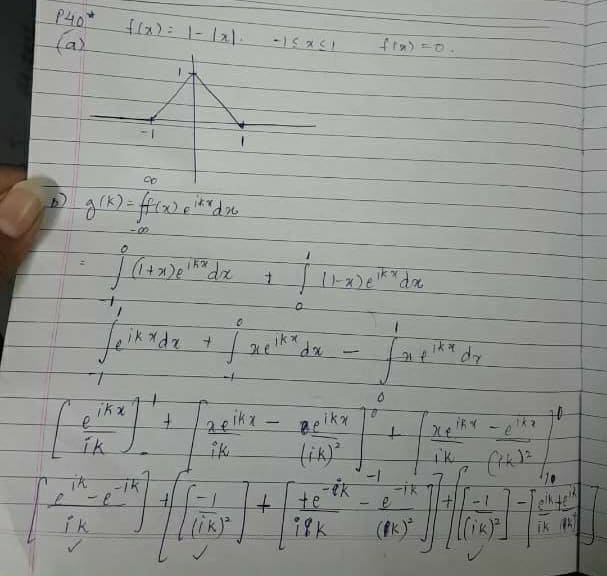 P40*
(a) f(x) = 1 - |x|. -1 ≤ x ≤ 1 f(x) = 0.
1
-1 1
b) g(k) = ∫_{-∞}^{∞} f(x) e^{ikx} dx
= ∫_{-1}^{0} (1+x) e^{ikx} dx + ∫_{0}^{1} (1-x) e^{ikx} dx
∫_{-1}^{1} e^{ikx} dx + ∫_{-1}^{0} x e^{ikx} dx - ∫_{0}^{1} x e^{ikx} dx
[e^{ikx}/ik]_{-}^{1} + [x e^{ikx}/ik - e^{ikx}/(ik)²]_{-1}^{0} + [x e^{ikx}/ik - e^{ikx}/(ik)²]_{1}^{0}
[(e^{ik} - e^{-ik})/ik] + [[-1/(ik)²] + [+e^{-ik}/ik - e^{-ik}/(ik)²]] + [[-1/(ik)²] - [e^{ik}/ik + e^{ik}/(ik)²]]